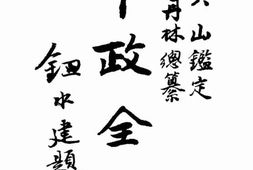 山鑑定
丹林總纂
政全
鈕永建題